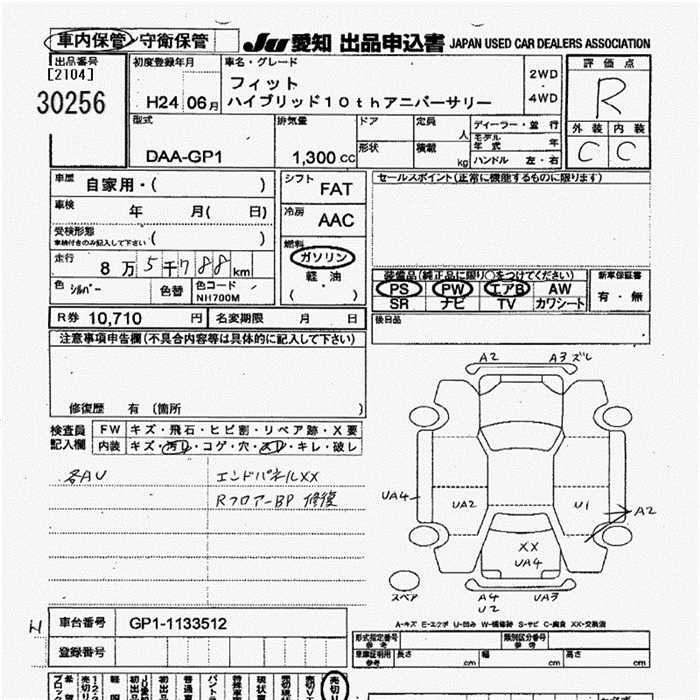 車内保管・守衛保管
JU 愛知 出品申込書 JAPAN USED CAR DEALERS ASSOCIATION
出品番号
[2104]
30256
初度登録年月
H24 06月
車名・グレード
フィット
ハイブリッド10thアニバーサリー
2WD
・
4WD
評価点
R
外装 内装
C C
型式
DAA-GP1
排気量
1,300 cc
ドア
形状
定員
人
積載
kg
ディーラー・並行
モデル年式 年
ハンドル 左・右
車歴
自家用・( )
車検
年 月( 日)
受検形態
車検付きのみ記入して下さい ( )
走行
8万5千788km
色 シルバー 色替 色コード NH700M
シフト
FAT
冷房
AAC
燃料
ガソリン
軽・油
( )
セールスポイント(正常に機能するものに限ります)
装備品(純正品に限り○をつけてください)
PS PW エアB AW
SR ナビ TV カワシート
新車保証書
有・無
後日品
R券 10,710 円 名変期限 月 日
注意事項申告欄(不具合内容等は具体的に記入して下さい)
修復歴 有 (箇所 )
検査員記入欄
FW キズ・飛石・ヒビ割・リペア跡・X要
内装 キズ・汚レ・コゲ・穴・スレ・キレ・破レ
各AU
エンドパネルXX
RフロアーBP 修復
A2 A3 ズレ
UA4
UA2
U1
A2
XX
UA4
スペア
A4
U2
UA3
A-キズ E-エクボ U-凹み W-補修跡 S-サビ C-腐食 XX-交換済
車台番号 GP1-1133512
登録番号
形式指定番号 参考
類別区分番号 参考
車庫証明用 参考
長さ cm 幅 cm 高さ cm
売切り